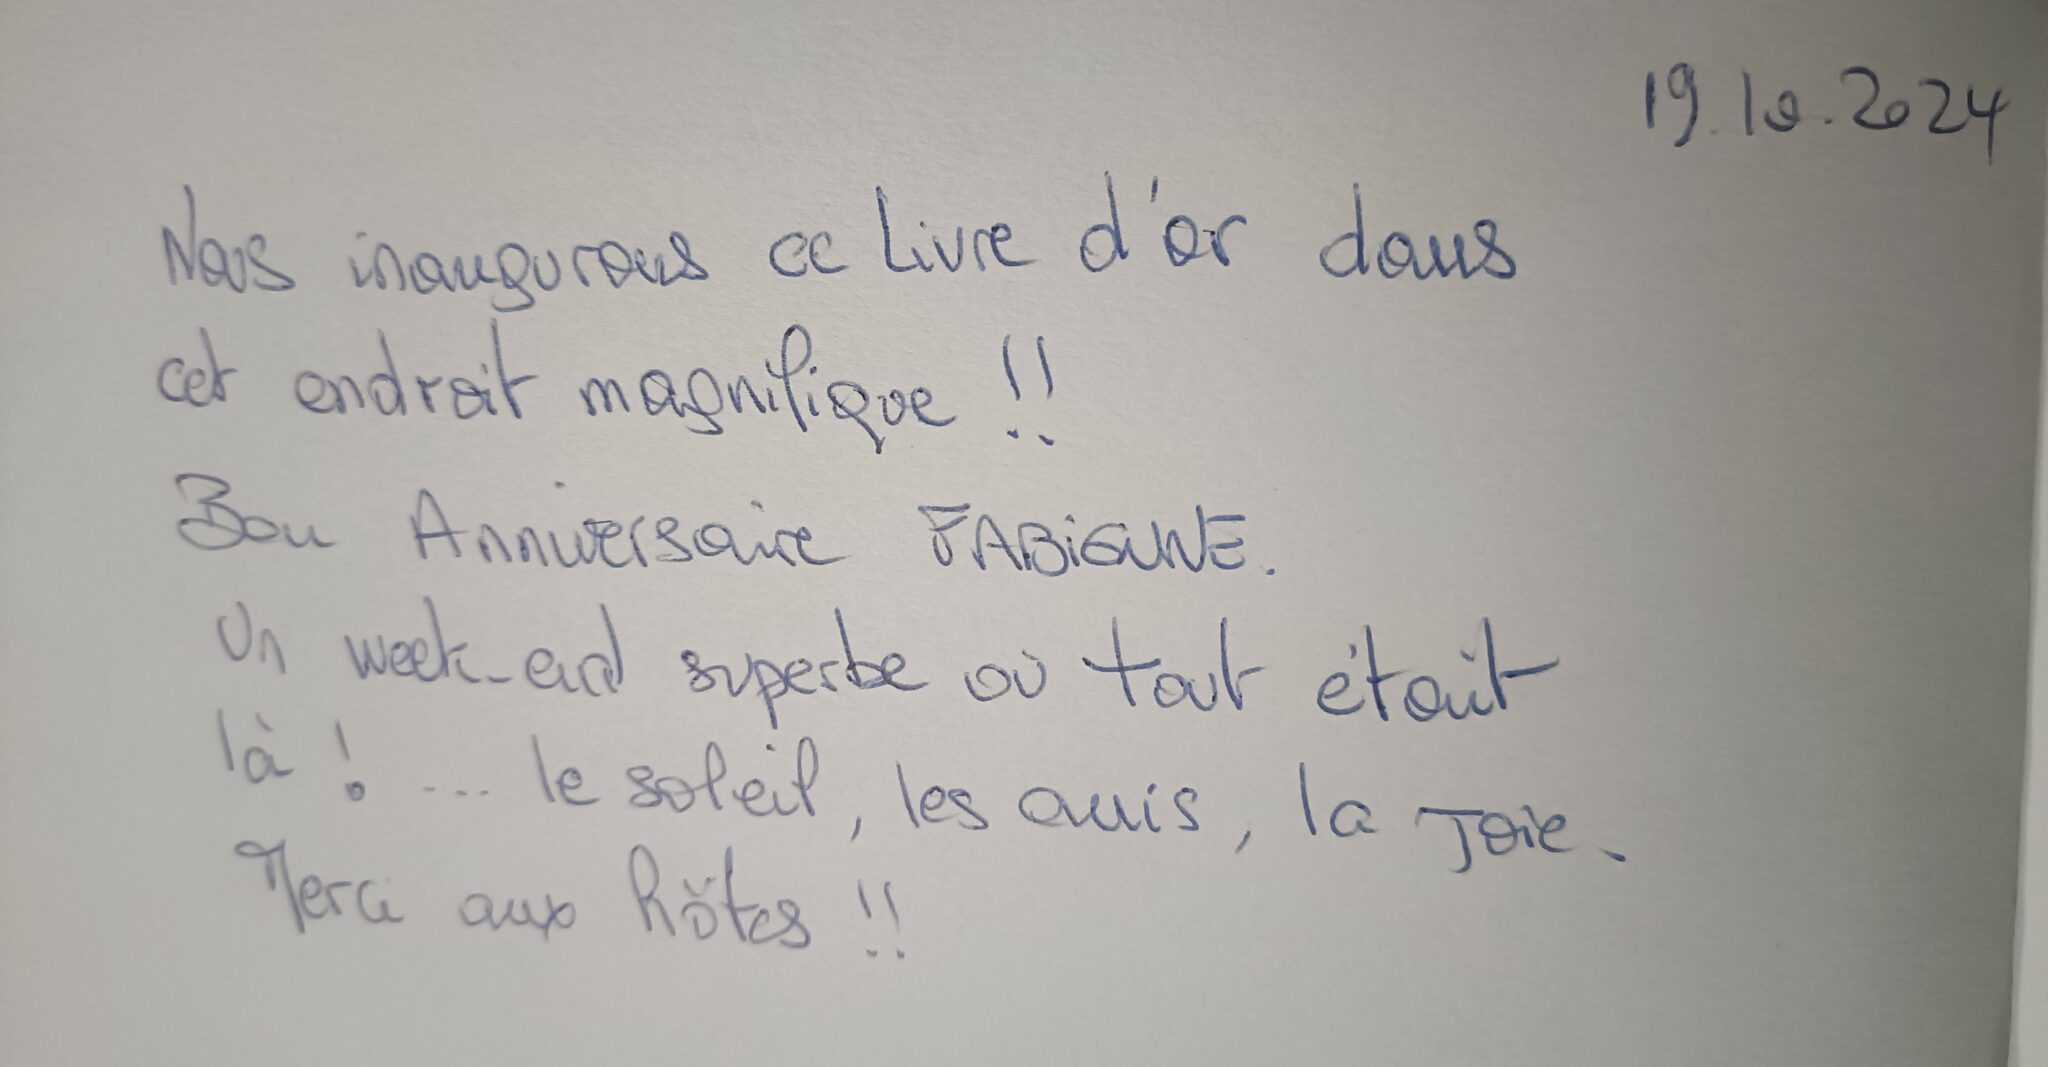 19.10.2024
Nous inaugurons ce Livre d'or dans
cet endroit magnifique !!
Bon Anniversaire FABIENNE.
Un week-end superbe où tout était
là ! ... le soleil, les amis, la Joie.
Merci aux hôtes !!